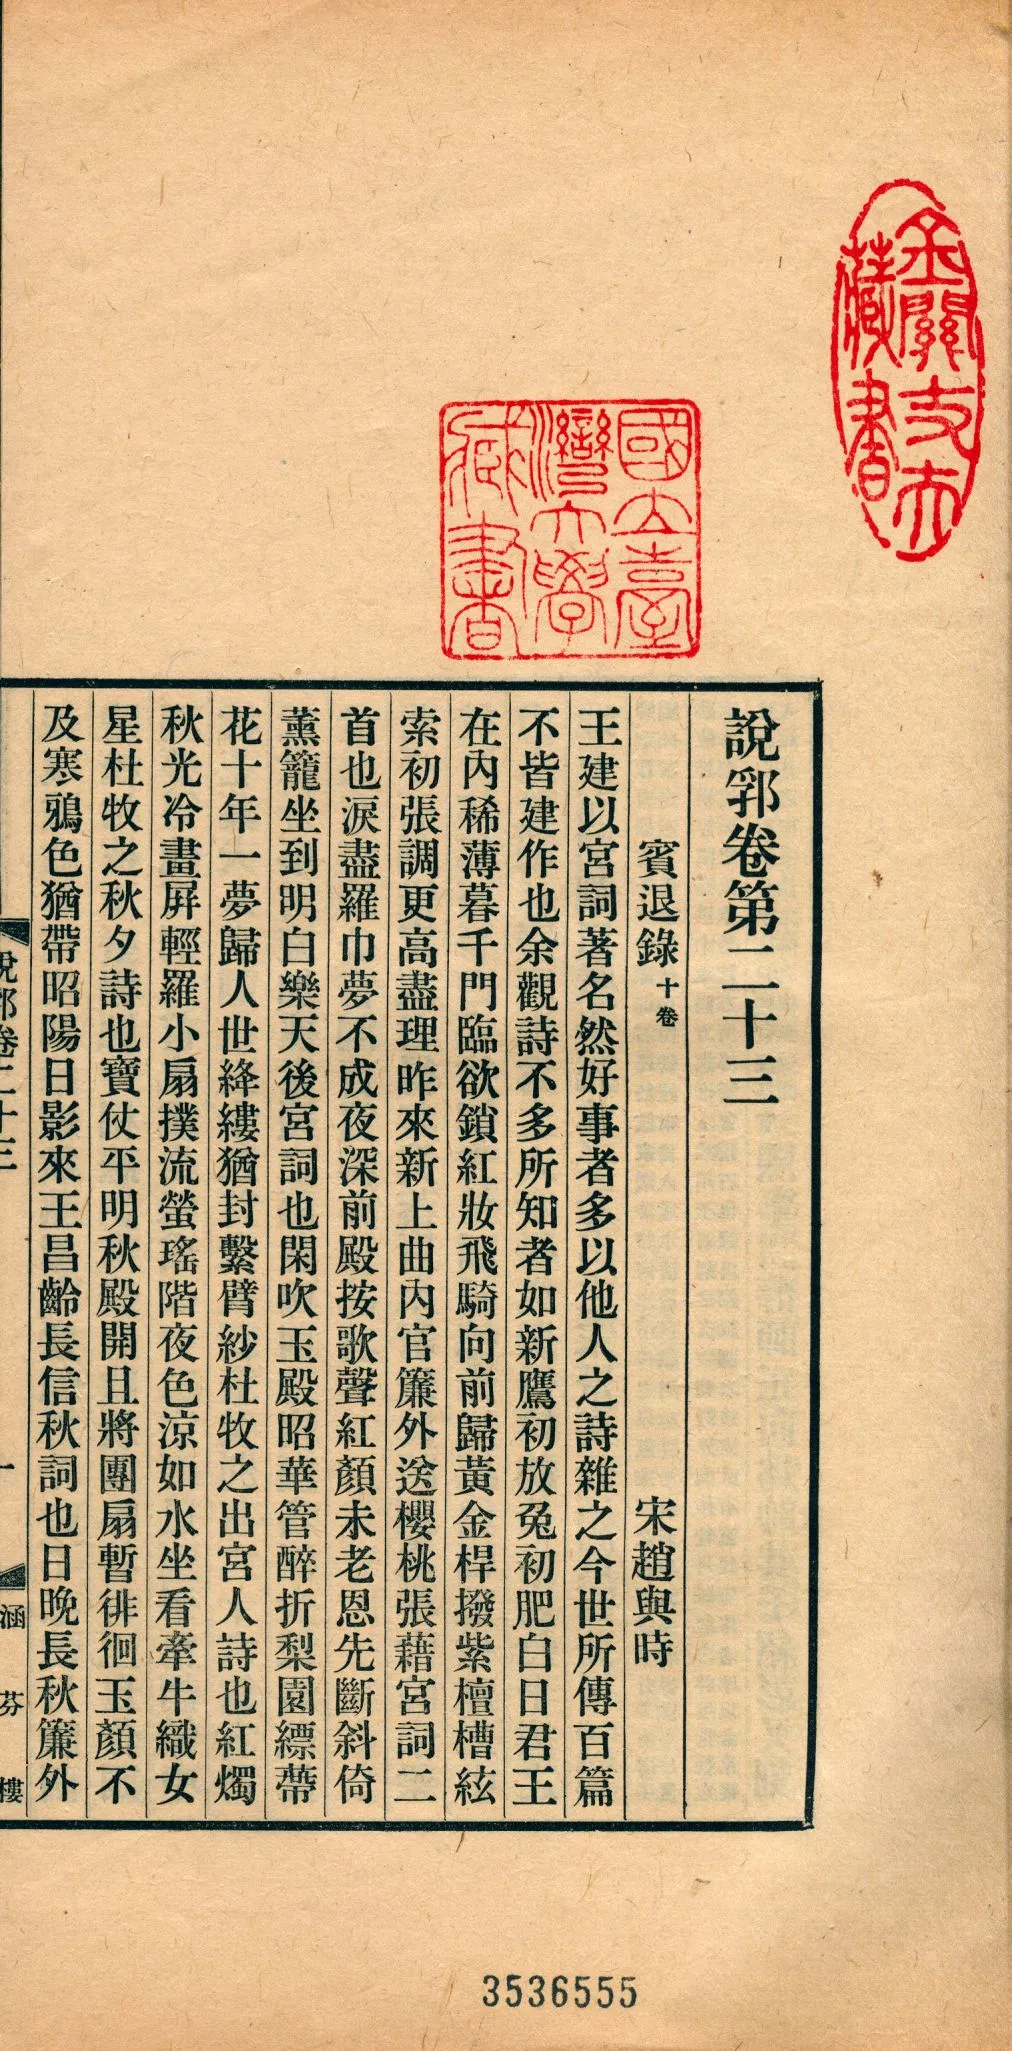 金關丈夫
藏書
國立臺
灣大學
藏書
說郛卷第二十三
賓退錄十卷 宋趙與時
王建以宮詞著名然好事者多以他人之詩雜之今世所傳百篇
不皆建作也余觀詩不多所知者如新鷹初放兔初肥白日君王
在內稀薄暮千門臨欲鎖紅妝飛騎向前歸黃金桿撥紫檀槽絃
索初張調更高盡理昨來新上曲內官簾外送櫻桃張藉宮詞二
首也淚盡羅巾夢不成夜深前殿按歌聲紅顏未老恩先斷斜倚
薰籠坐到明白樂天後宮詞也閑吹玉殿昭華管醉折梨園縹蔕
花十年一夢歸人世絳縷猶封繫臂紗杜牧之出宮人詩也紅燭
秋光冷畫屛輕羅小扇撲流螢瑤階夜色涼如水坐看牽牛織女
星杜牧之秋夕詩也寶仗平明秋殿開且將團扇暫徘徊玉顏不
及寒鴉色猶帶昭陽日影來王昌齡長信秋詞也日晚長秋簾外
說郛卷二十三 一 涵芬樓
3536555